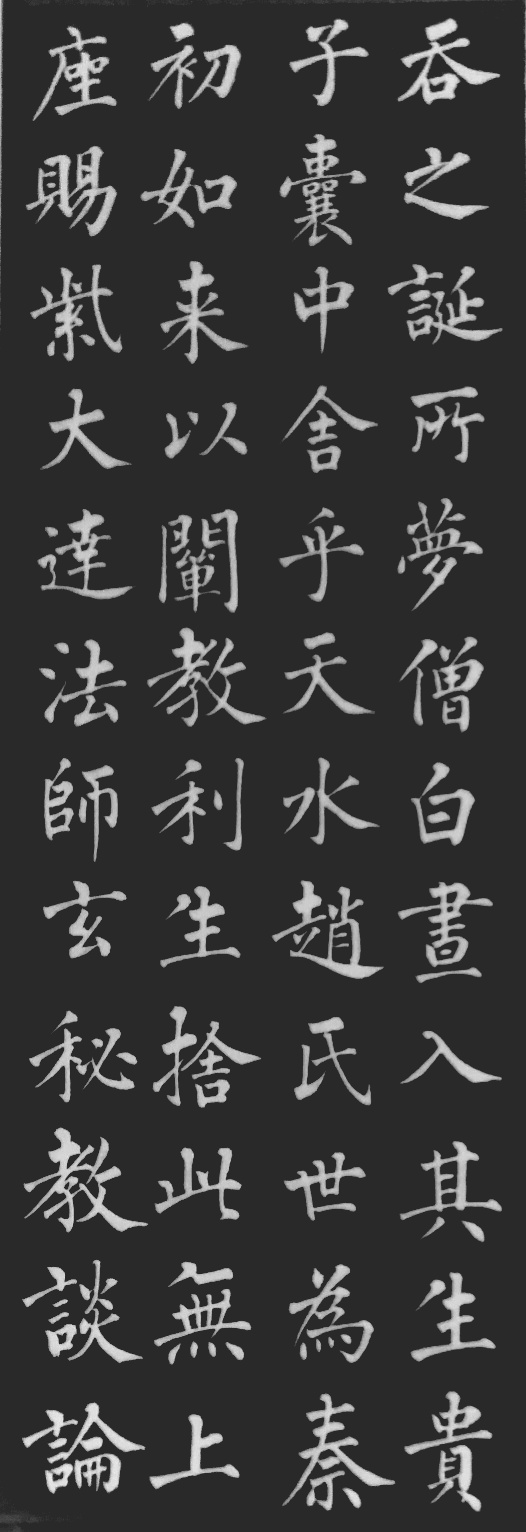 吞之誕所夢僧白晝入其生貴
子囊中舎乎天水趙氏世為秦
初如来以闡教利生捨此無上
座賜紫大達法師玄秘教談論